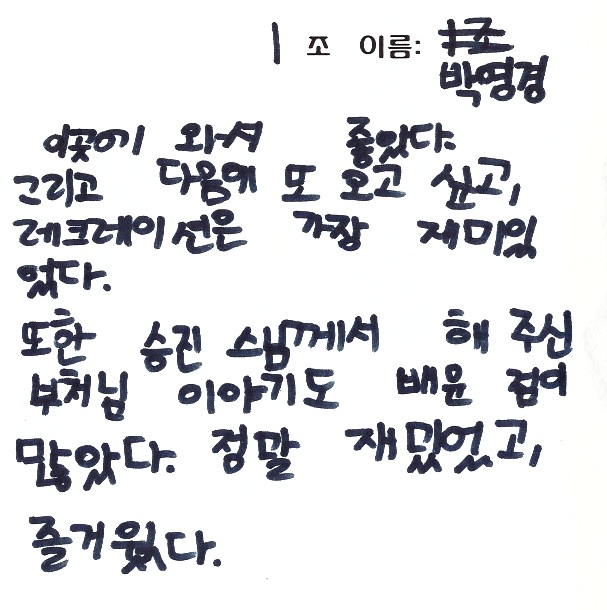 1 조 이름:
박영경
이곳에 와서 좋았다.
그리고 다음에 또 오고 싶고,
레크레이션은 가장 재미있
었다.
또한 승진 스님께서 해 주신
부처님 이야기도 배운 점이
많았다. 정말 재밌었고,
즐거웠다.